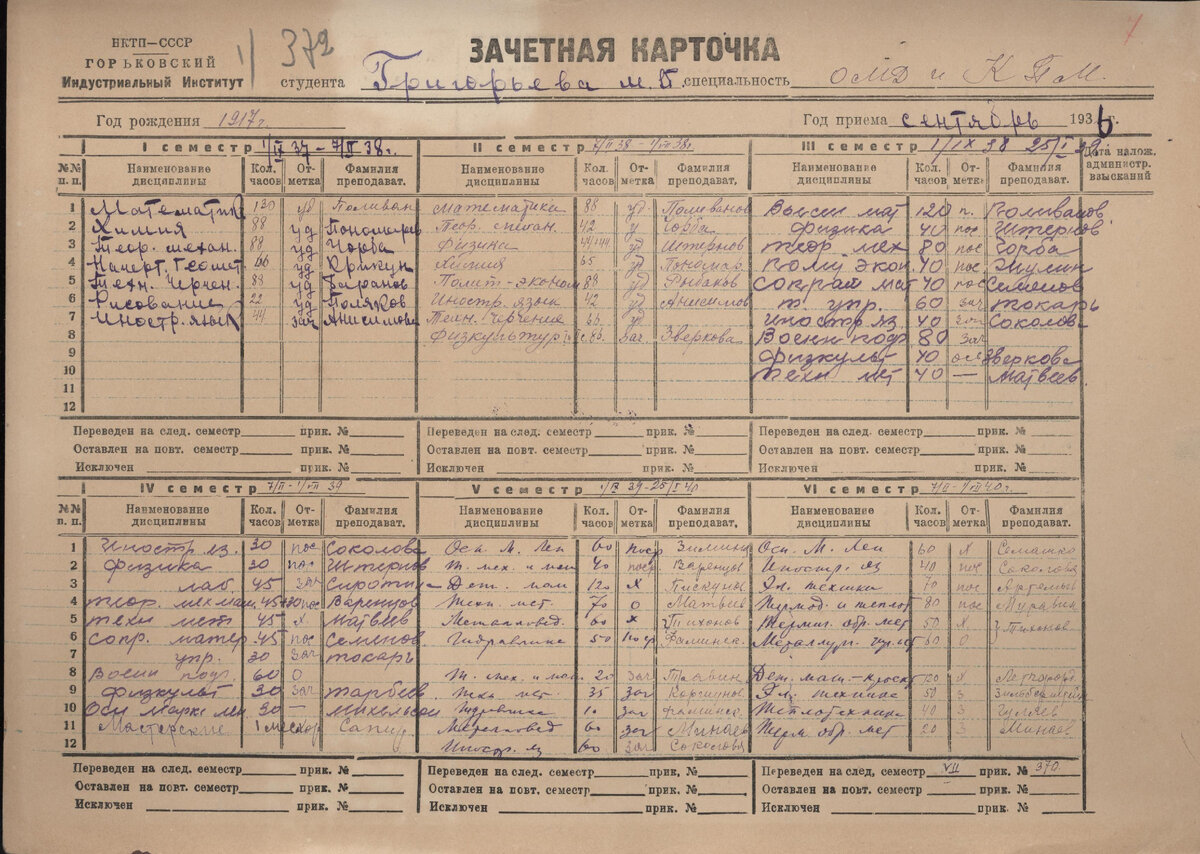 НКТП—СССР
ГОРЬКОВСКИЙ
Индустриальный Институт
1/372
7
ЗАЧЕТНАЯ КАРТОЧКА
студента Григорьева М.П. специальность ОМД и К ТМ.
Год рождения 1917г.
Год приема сентябрь 1936 г.
I семестр 1/IX 37 - 7/II 38г.
№№ п. п. Наименование дисциплины Кол. часов От-метка Фамилия преподават.
1 Математика 130 уд Поливан
2 Химия 88 уд Пономарев
3 Теор. механ. 88 уд Чорба
4 Начерт. Геомет. 66 уд Крикун
5 Техн. Черчен. 88 уд Баранов
6 Рисование 22 уд Поляков
7 Иностр. язык 44 зач Анисимова
8
9
10
11
12
II семестр 7/II 38 - 1/VII 38г.
Наименование дисциплины Кол. часов От-метка Фамилия преподават,
математика 88 уд Поливанов
Теор. механ. 42 у Чорба
Физика 44+44 уд Штернов
Химия 65 у Пономар
Полит-эконом 88 уд Рыбаков
Иностр. язык 42 уд Анисимов
Техн. черчение 66 уд
Физкультур зач Зверкова
III семестр 1/IX 38 25/I 39
Наименование дисциплины Кол. часов От-метка Фамилия преподават.
Дата налож. администр. взысканий
Высш мат 120 п. Поливанов
Физика 40 пос Штернов
теор мех 80 пос Чорба
Полит экон. 40 пос
сопрат мат 40 пос Семенов
т. упр. 60 зач токарь
иностр яз. 40 зач Соколова
Военн под 80 зач
Физкульт 40 Зверкова
техн мет 40 — Матвеев
Переведен на след. семестр прик. №
Оставлен на повт. семестр прик. №
Исключен прик. №
Переведен на след. семестр прик. №
Оставлен на повт. семестр прик. №
Исключен прик. №
Переведен на след. семестр прик. №
Оставлен на повт. семестр прик. №
Исключен прик. №
IV семестр 7/II - 1/VII 39
№№ п. п. Наименование дисциплины Кол. часов От-метка Фамилия преподават.
1 Иностр. яз. 30 пос Соколова
2 физика 30 пос Штернов
3 лаб 45 зач
4 теор. мех маш 45+30 пос Варенцов
5 техн мет 45 х. матвеев
6 сопр. матер 45 пос Семенов
7 упр. 30 зач токарь
8 Военн подг. 60 О
9 Физкульт 30 зач тарбеев
10 Осн маркс лен 30 — михельсон
11 Мастерские 1 месяц
12
V семестр 1/IX 39 - 25/I 40
Наименование дисциплины Кол. часов От-метка Фамилия преподават,
Осн. М. Лен 60 поср Зимину
т. мех. и маш 40 поср. Варенцы
Дет. маш 120 х Пискунов
Техн. мет. 70 О Матвеев
Металловед. 60 х Тихонов
Гидравлика 50 поср
т. мех. и маш. 20 зач
тхн. мет. 35 зач
Гидравлика 10 зач
Металловед 60 зач Минаев
Иностр. яз 60 зач Соколова
VI семестр 7/II - 1/VII 40г.
Наименование дисциплины Кол. часов От-метка Фамилия преподават.
Осн. М. Лен 60 х Семашко
Иностр. яз 40 пос Соколова
Эл. техника 70 пос Артемьев
Термод. и теплот 80 пос Муравин
Термич. обр. мет 50 х } Тихонов
Металлург. 60 О
Дет. маш. - проект 120 х
Эл. техника 50 З
Теплотехника 40 З Гуляев
Терм. обр. мет 20 З Минаев
Переведен на след. семестр прик. №
Оставлен на повт. семестр прик. №
Исключен прик. №
Переведен на след. семестр прик. №
Оставлен на повт. семестр прик. №
Исключен прик. №
Переведен на след, семестр VII прик. № 370.
Оставлен на повт. семестр прик. №
Исключен прик. №